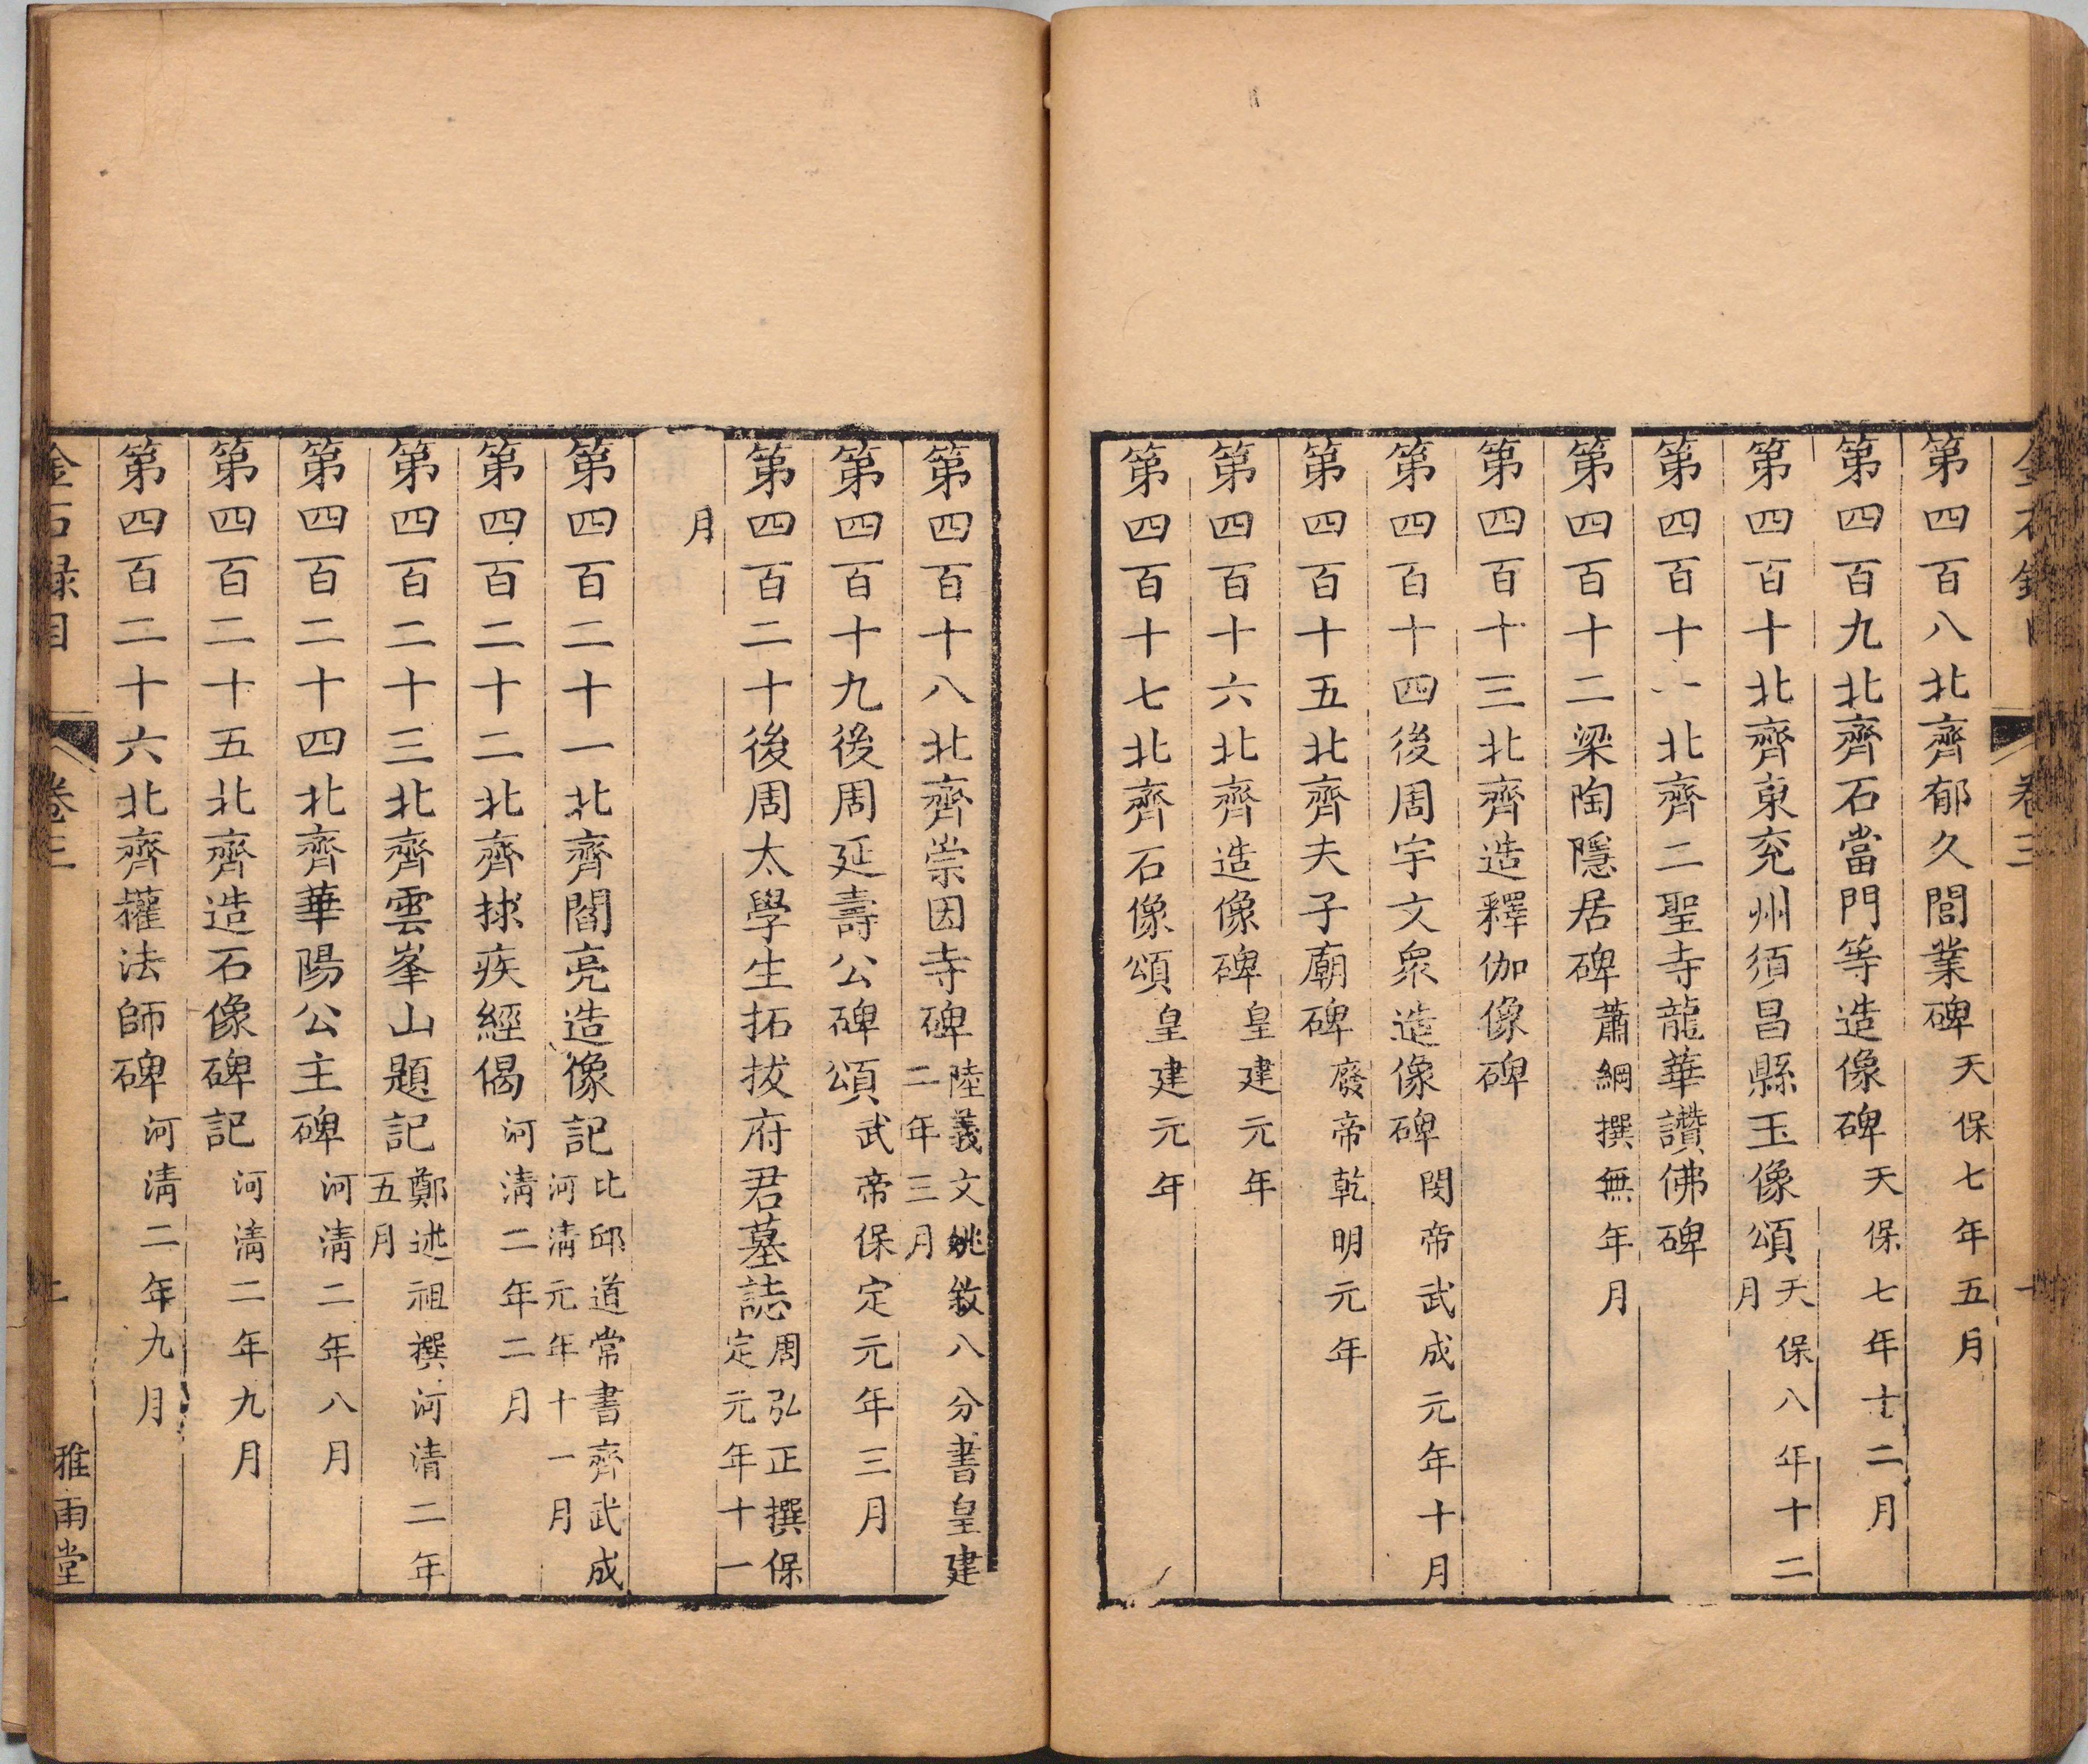 金石錄目 卷三
第四百八北齊郁久閭業碑 天保七年五月
第四百九北齊石當門等造像碑 天保七年十二月
第四百十北齊東兖州須昌縣玉像頌 天保八年十二月
第四百十一北齊二聖寺龍華讚佛碑
第四百十二梁陶隱居碑 蕭綱撰無年月
第四百十三北齊造釋伽像碑
第四百十四後周宇文衆造像碑 閔帝武成元年十月
第四百十五北齊夫子廟碑 廢帝乾明元年
第四百十六北齊造像碑 皇建元年
第四百十七北齊石像頌 皇建元年
第四百十八北齊崇因寺碑 陸義文姚敘八分書皇建二年三月
第四百十九後周延壽公碑頌 武帝保定元年三月
第四百二十後周太學生拓拔府君墓誌 周弘正撰保定元年十一
月
第四百二十一北齊閻亮造像記 比邱道常書齊武成河淸元年十一月
第四百二十二北齊捄疾經偈 河淸二年二月
第四百二十三北齊雲峯山題記 鄭述祖撰河清二年五月
第四百二十四北齊華陽公主碑 河淸二年八月
第四百二十五北齊造石像碑記 河淸二年九月
第四百二十六北齊㩲法師碑 河淸二年九月
金石録目 卷三 雅雨堂